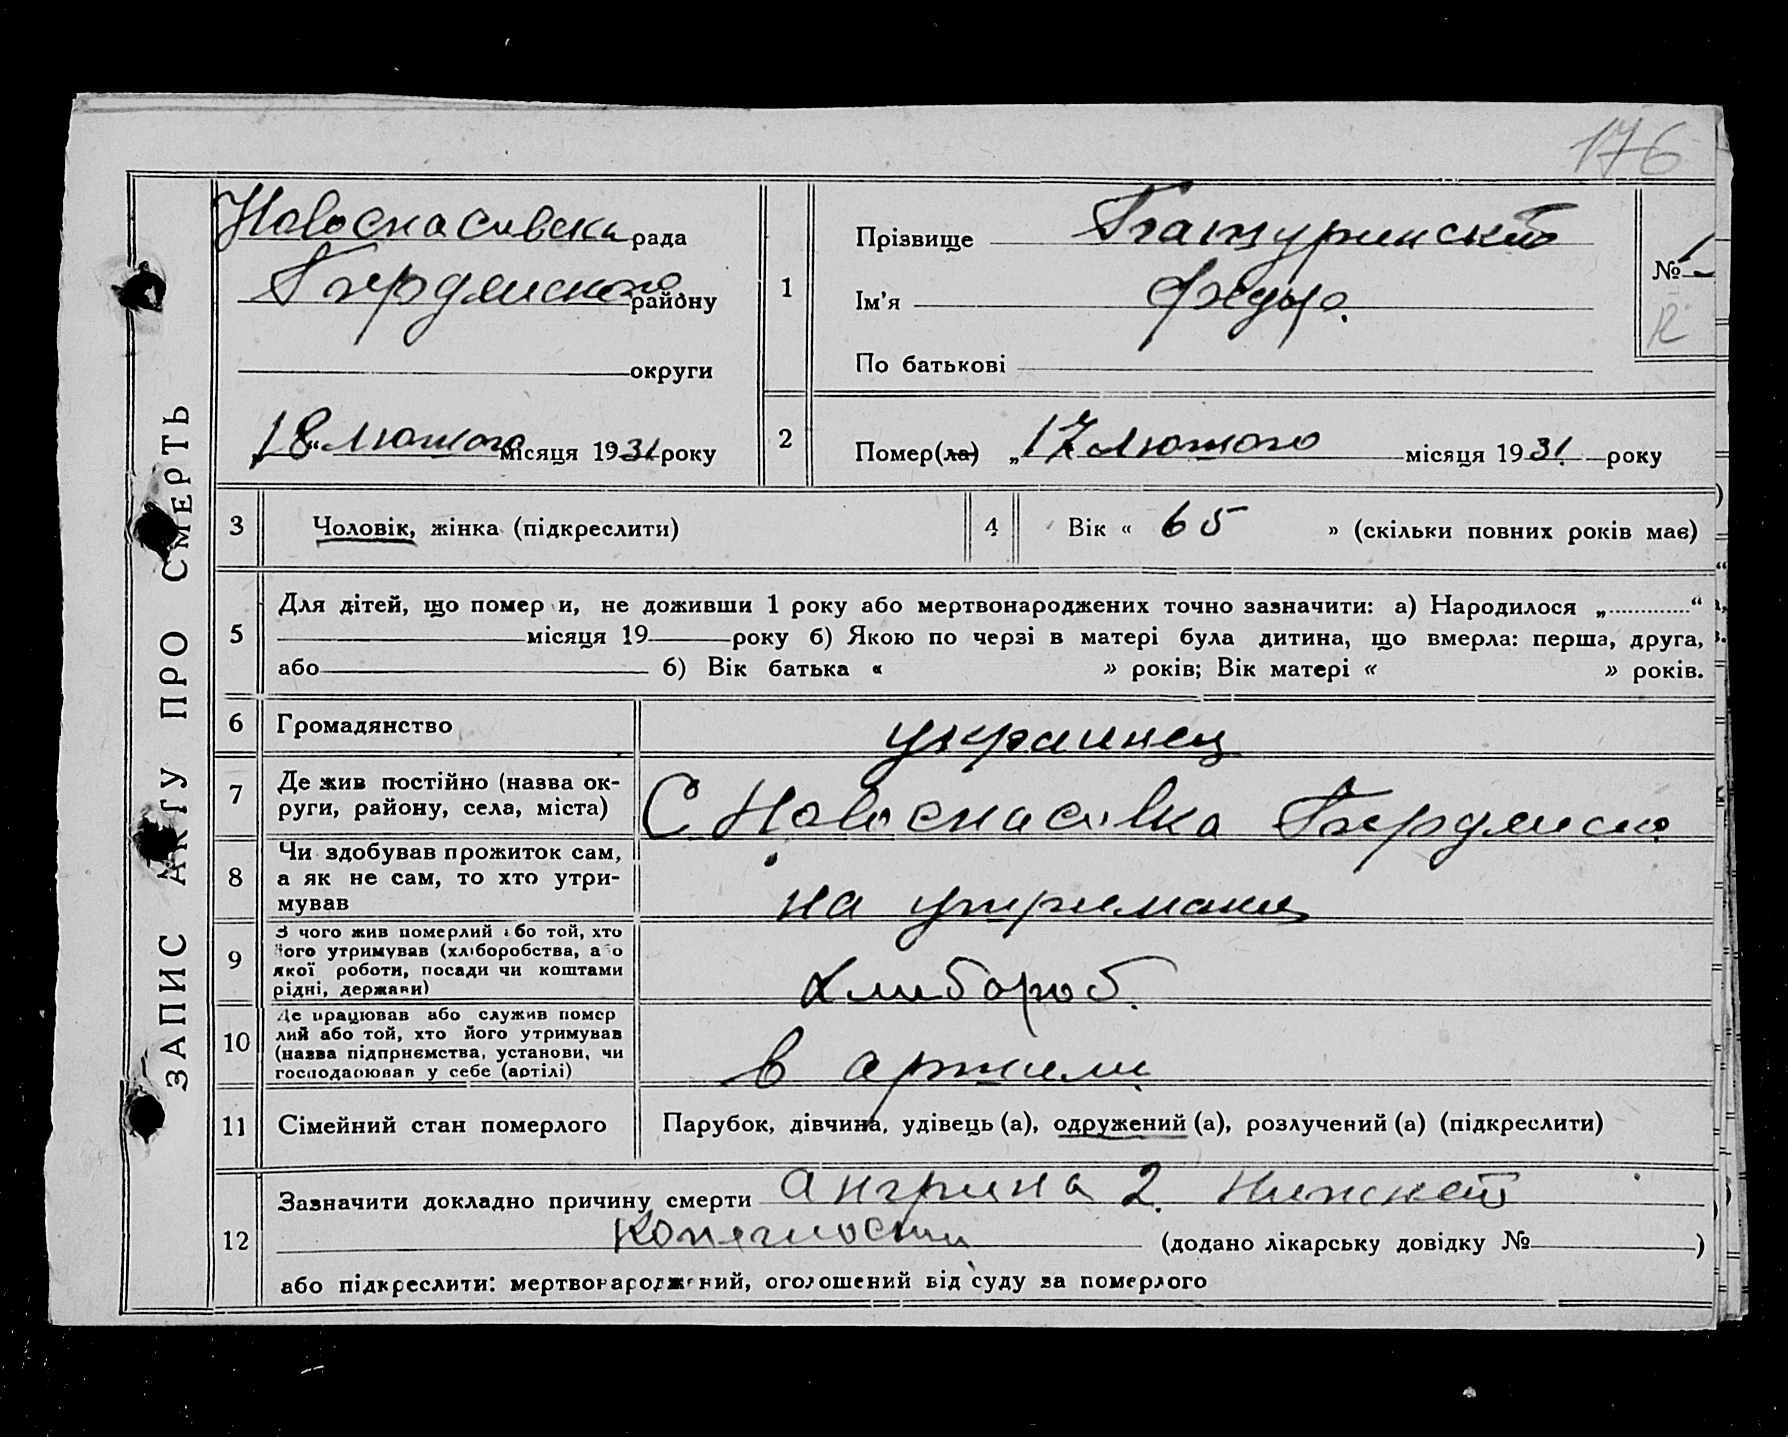 176
ЗАПИС АКТУ ПРО СМЕРТЬ
Новоспасивска рада
Бердянського району
округи
18 лютого місяця 1931 року
1
Прізвище Батуринский
Ім'я Федор.
По батькові
№ 1
2
Помер(ла) „17 лютого місяця 1931. року
3
Чоловік, жінка (підкреслити)
4
Вік « 65 » (скільки повних років має)
5
Для дітей, що помер и, не доживши 1 року або мертвонароджених точно зазначити: а) Народилося „............“
місяця 19 року б) Якою по черзі в матері була дитина, що вмерла: перша, друга,
або б) Вік батька « » років; Вік матері « » років.
6
Громадянство
украинец
7
Де жив постійно (назва ок-
руги, району, села, міста)
С Новоспасивка Бердянско
8
Чи здобував прожиток сам,
а як не сам, то хто утри-
мував
на утримани
9
З чого жив померлий або той, хто
його утримував (хліборобства, або
якої роботи, посади чи коштами
рідні, держави)
Хлибороб.
10
Де працював або служив помер
лий або той, хто його утримував
(назва підприємства, установи, чи
господарював у себе (артілі)
в артили
11
Сімейний стан померлого
Парубок, дівчина, удівець (а), одружений (а), розлучений (а) (підкреслити)
12
Зазначити докладно причину смерти ангрина 2. нижней
конечности (додано лікарську довідку № )
або підкреслити: мертвонароджений, оголошений від суду за померлого